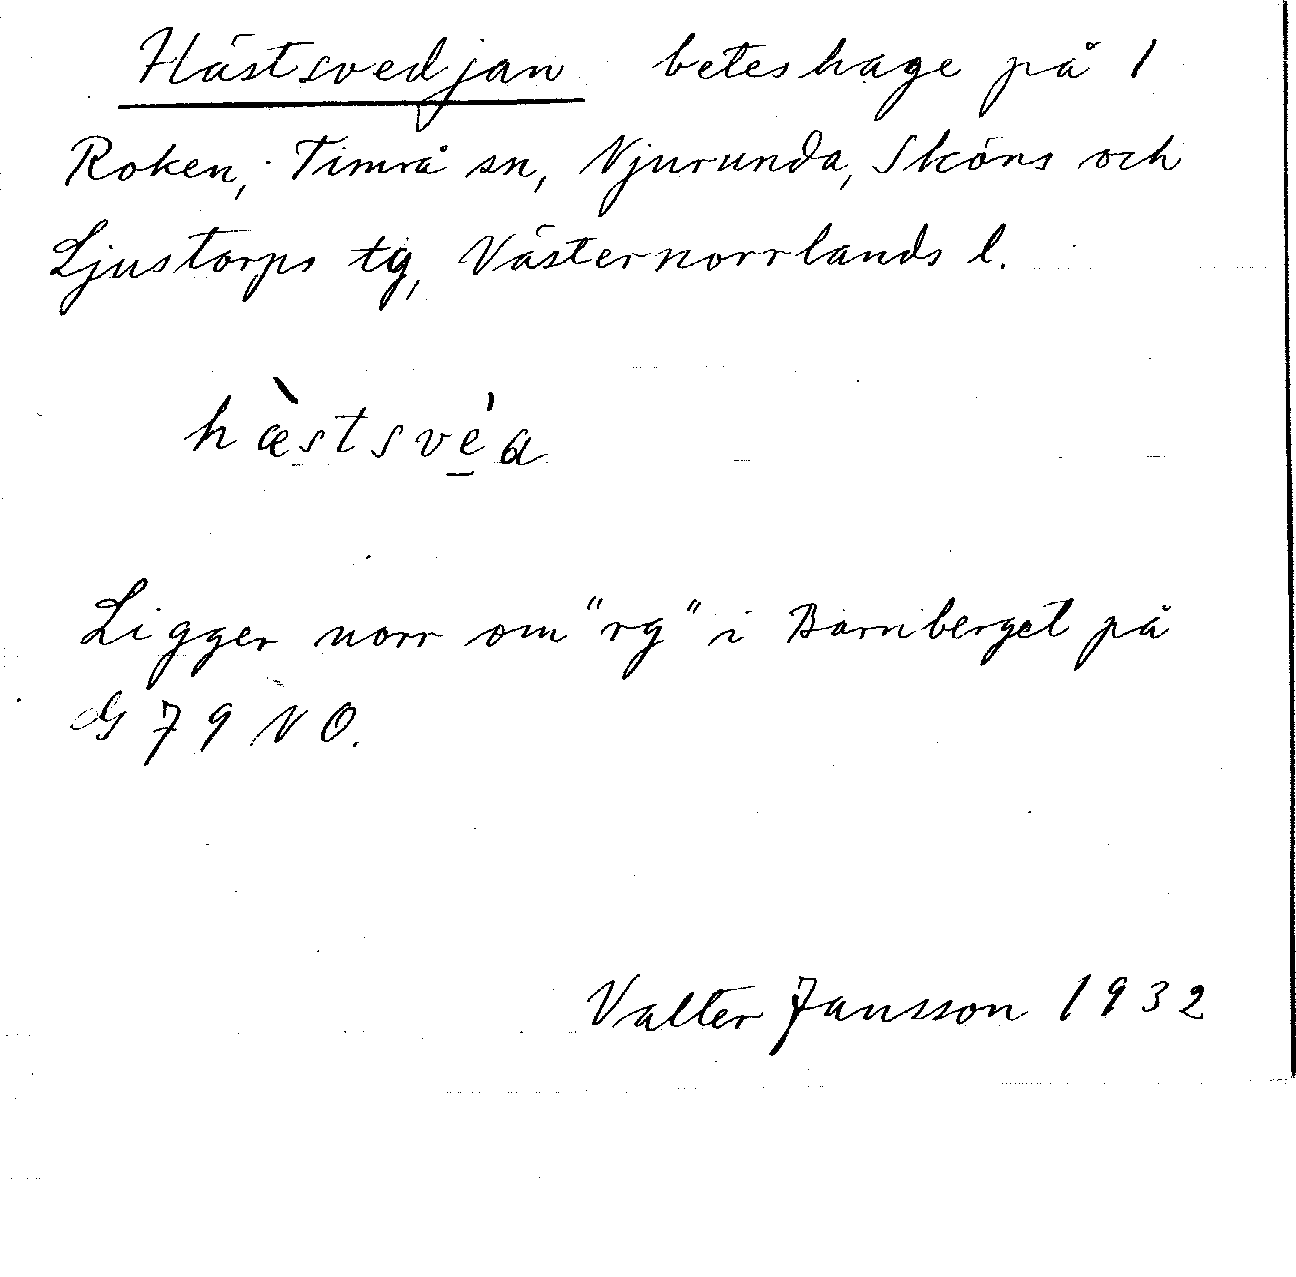 Hästsvedjan beteshage på 1
Roken, Timrå sn, Njurunda, Sköns och
Ljustorps tg, Västernorrlands l.
hæ̀stsvé̱a
Ligger norr om "rg" i Barnberget på
G 79 NO.
Valter Jansson 1932